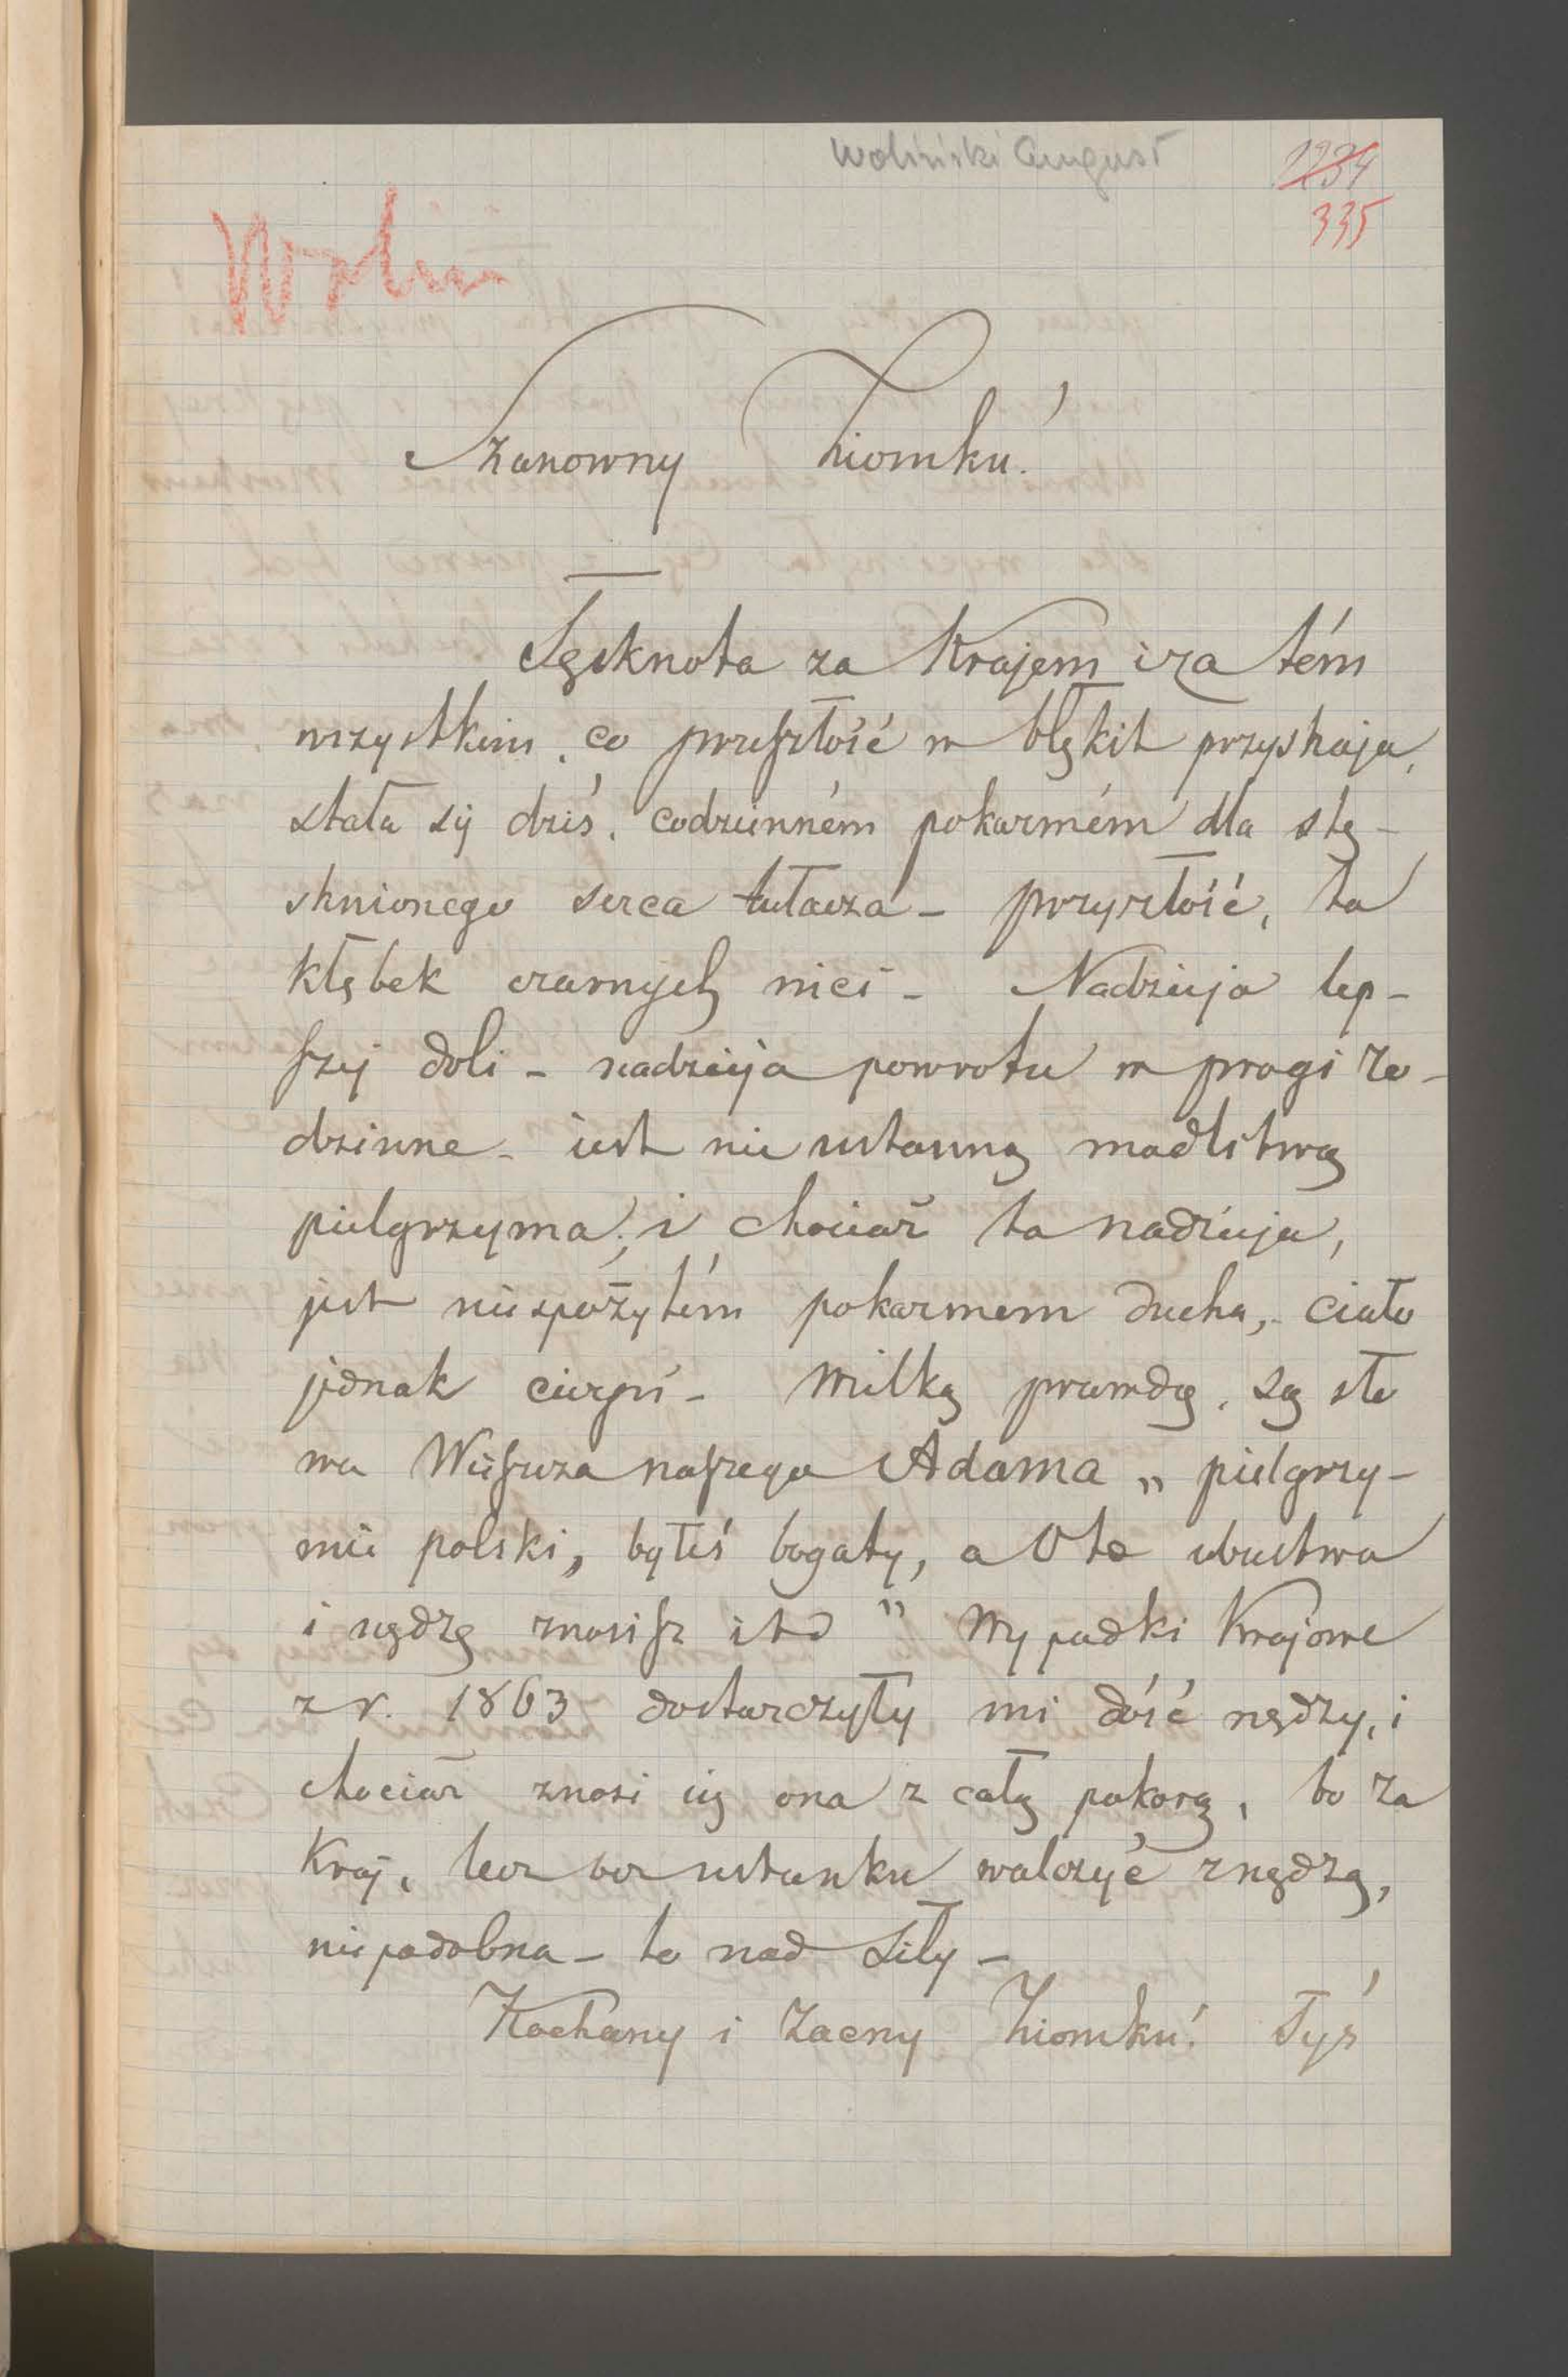 Woliński August
1234
335
Woliń
Szanowny Ziomku!
Tęsknota za Krajem i za tém
wszystkim, co przeszłość w błękit przystraja,
stała się dziś, codzienném pokarmém dla stę-
sknionego serca tułacza - przyszłość, to
kłębek czarnych nici - Nadzieja lep-
szej doli - nadzieja powrotu w progi ro-
dzinne - jest nieustanną modlitwą
pielgrzyma; i chociaż ta nadzieja,
jest niespożytém pokarmem ducha, ciało
jednak cierpi - Wielką prawdą, są sło
wa Wieszcza naszego Adama „pielgrzy-
mie polski, byłeś bogaty, a oto ubustwo
i nędzę znosisz itd" Wypadki Krajowe
z r. 1863 dostarczyły mi dość nędzy, i
chociaż znosi się ona z całą pokorą, bo za
Kraj, lecz bez ustanku walczyć z nędzą,
niepodobna - to nad siły -
Kochany i Zacny Ziomku! Tyś